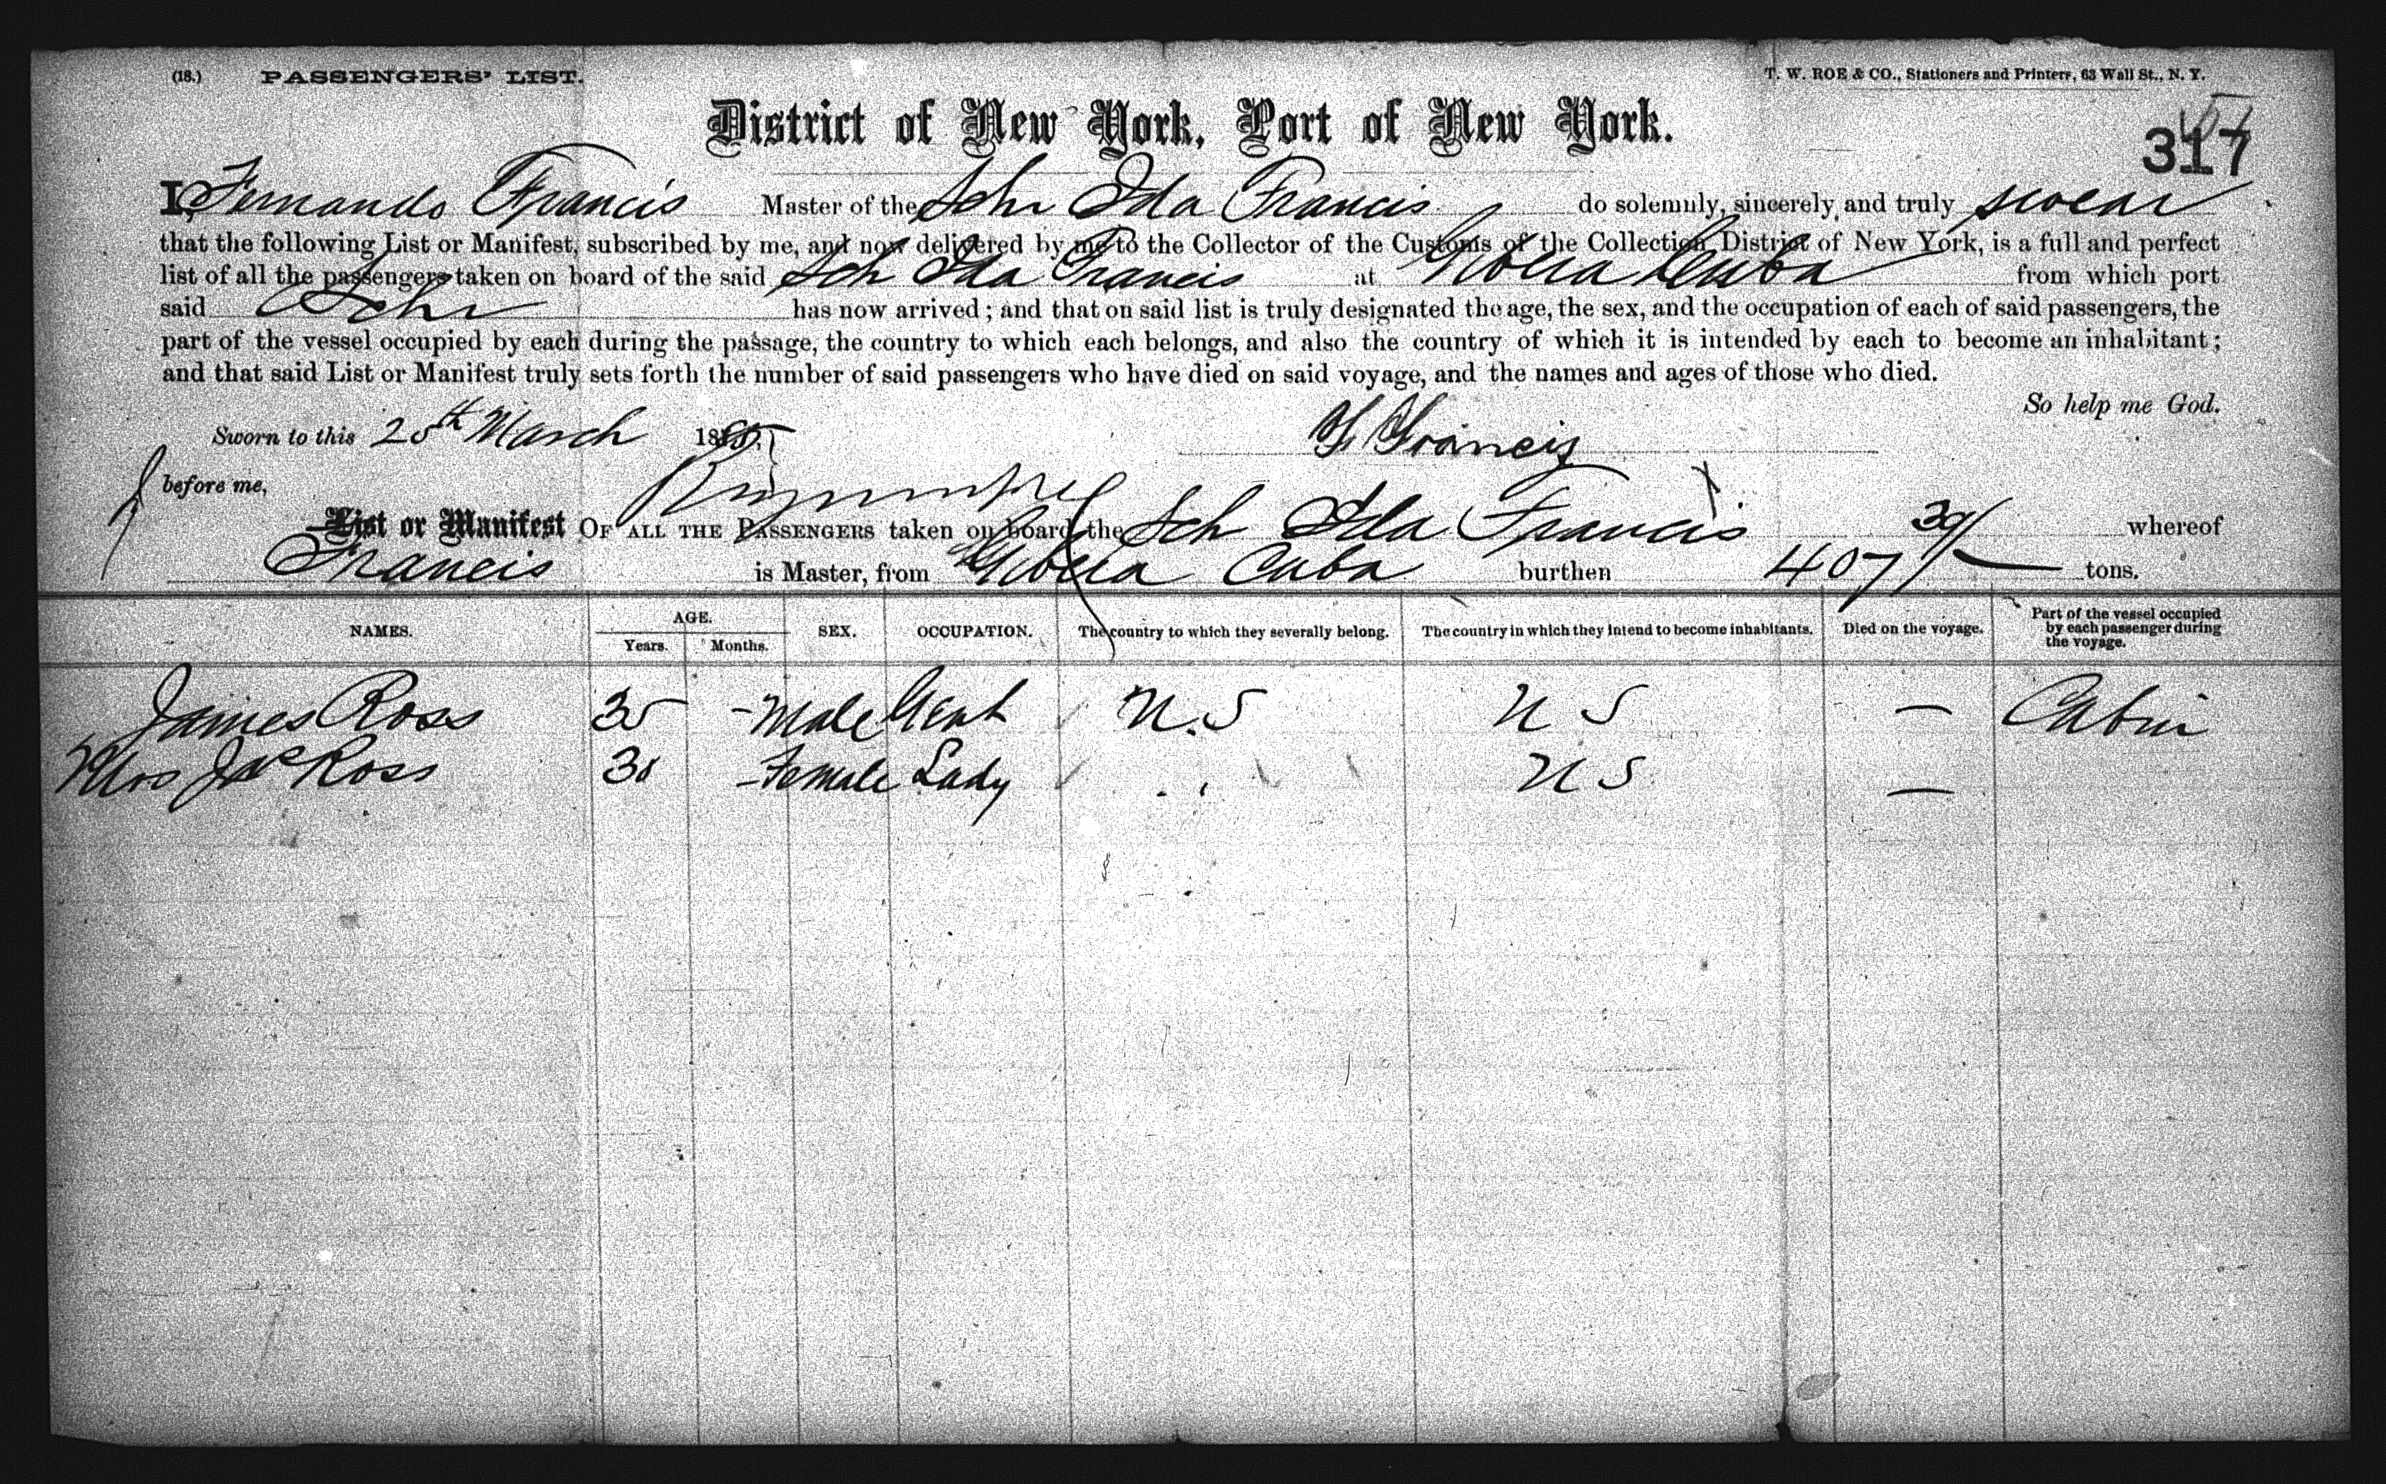 (18.) PASSENGERS' LIST. T. W. ROE & CO., Stationers and Printers, 63 Wall St., N. Y.
District of New York, Port of New York.
317
I, Fernando Francis Master of the Schr Ida Francis do solemnly, sincerely and truly swear
that the following List or Manifest, subscribed by me, and now delivered by me to the Collector of the Customs of the Collection District of New York, is a full and perfect
list of all the passengers taken on board of the said Sch Ida Francis at Gibera Cuba from which port
said Schr has now arrived; and that on said list is truly designated the age, the sex, and the occupation of each of said passengers, the
part of the vessel occupied by each during the passage, the country to which each belongs, and also the country of which it is intended by each to become an inhabitant;
and that said List or Manifest truly sets forth the number of said passengers who have died on said voyage, and the names and ages of those who died.
So help me God.
Sworn to this 25th March 1885. F. Francis
before me,
List or Manifest OF ALL THE PASSENGERS taken on board the Sch Ida Francis whereof
Francis is Master, from Gibera Cuba burthen 407 39/ tons.
NAMES. AGE. Years. Months. SEX. OCCUPATION. The country to which they severally belong. The country in which they intend to become inhabitants. Died on the voyage. Part of the vessel occupied by each passenger during the voyage.
James Ross 35 - Male Gent U.S U S — Cabin
Mrs Jas Ross 30 - Female Lady " U S —